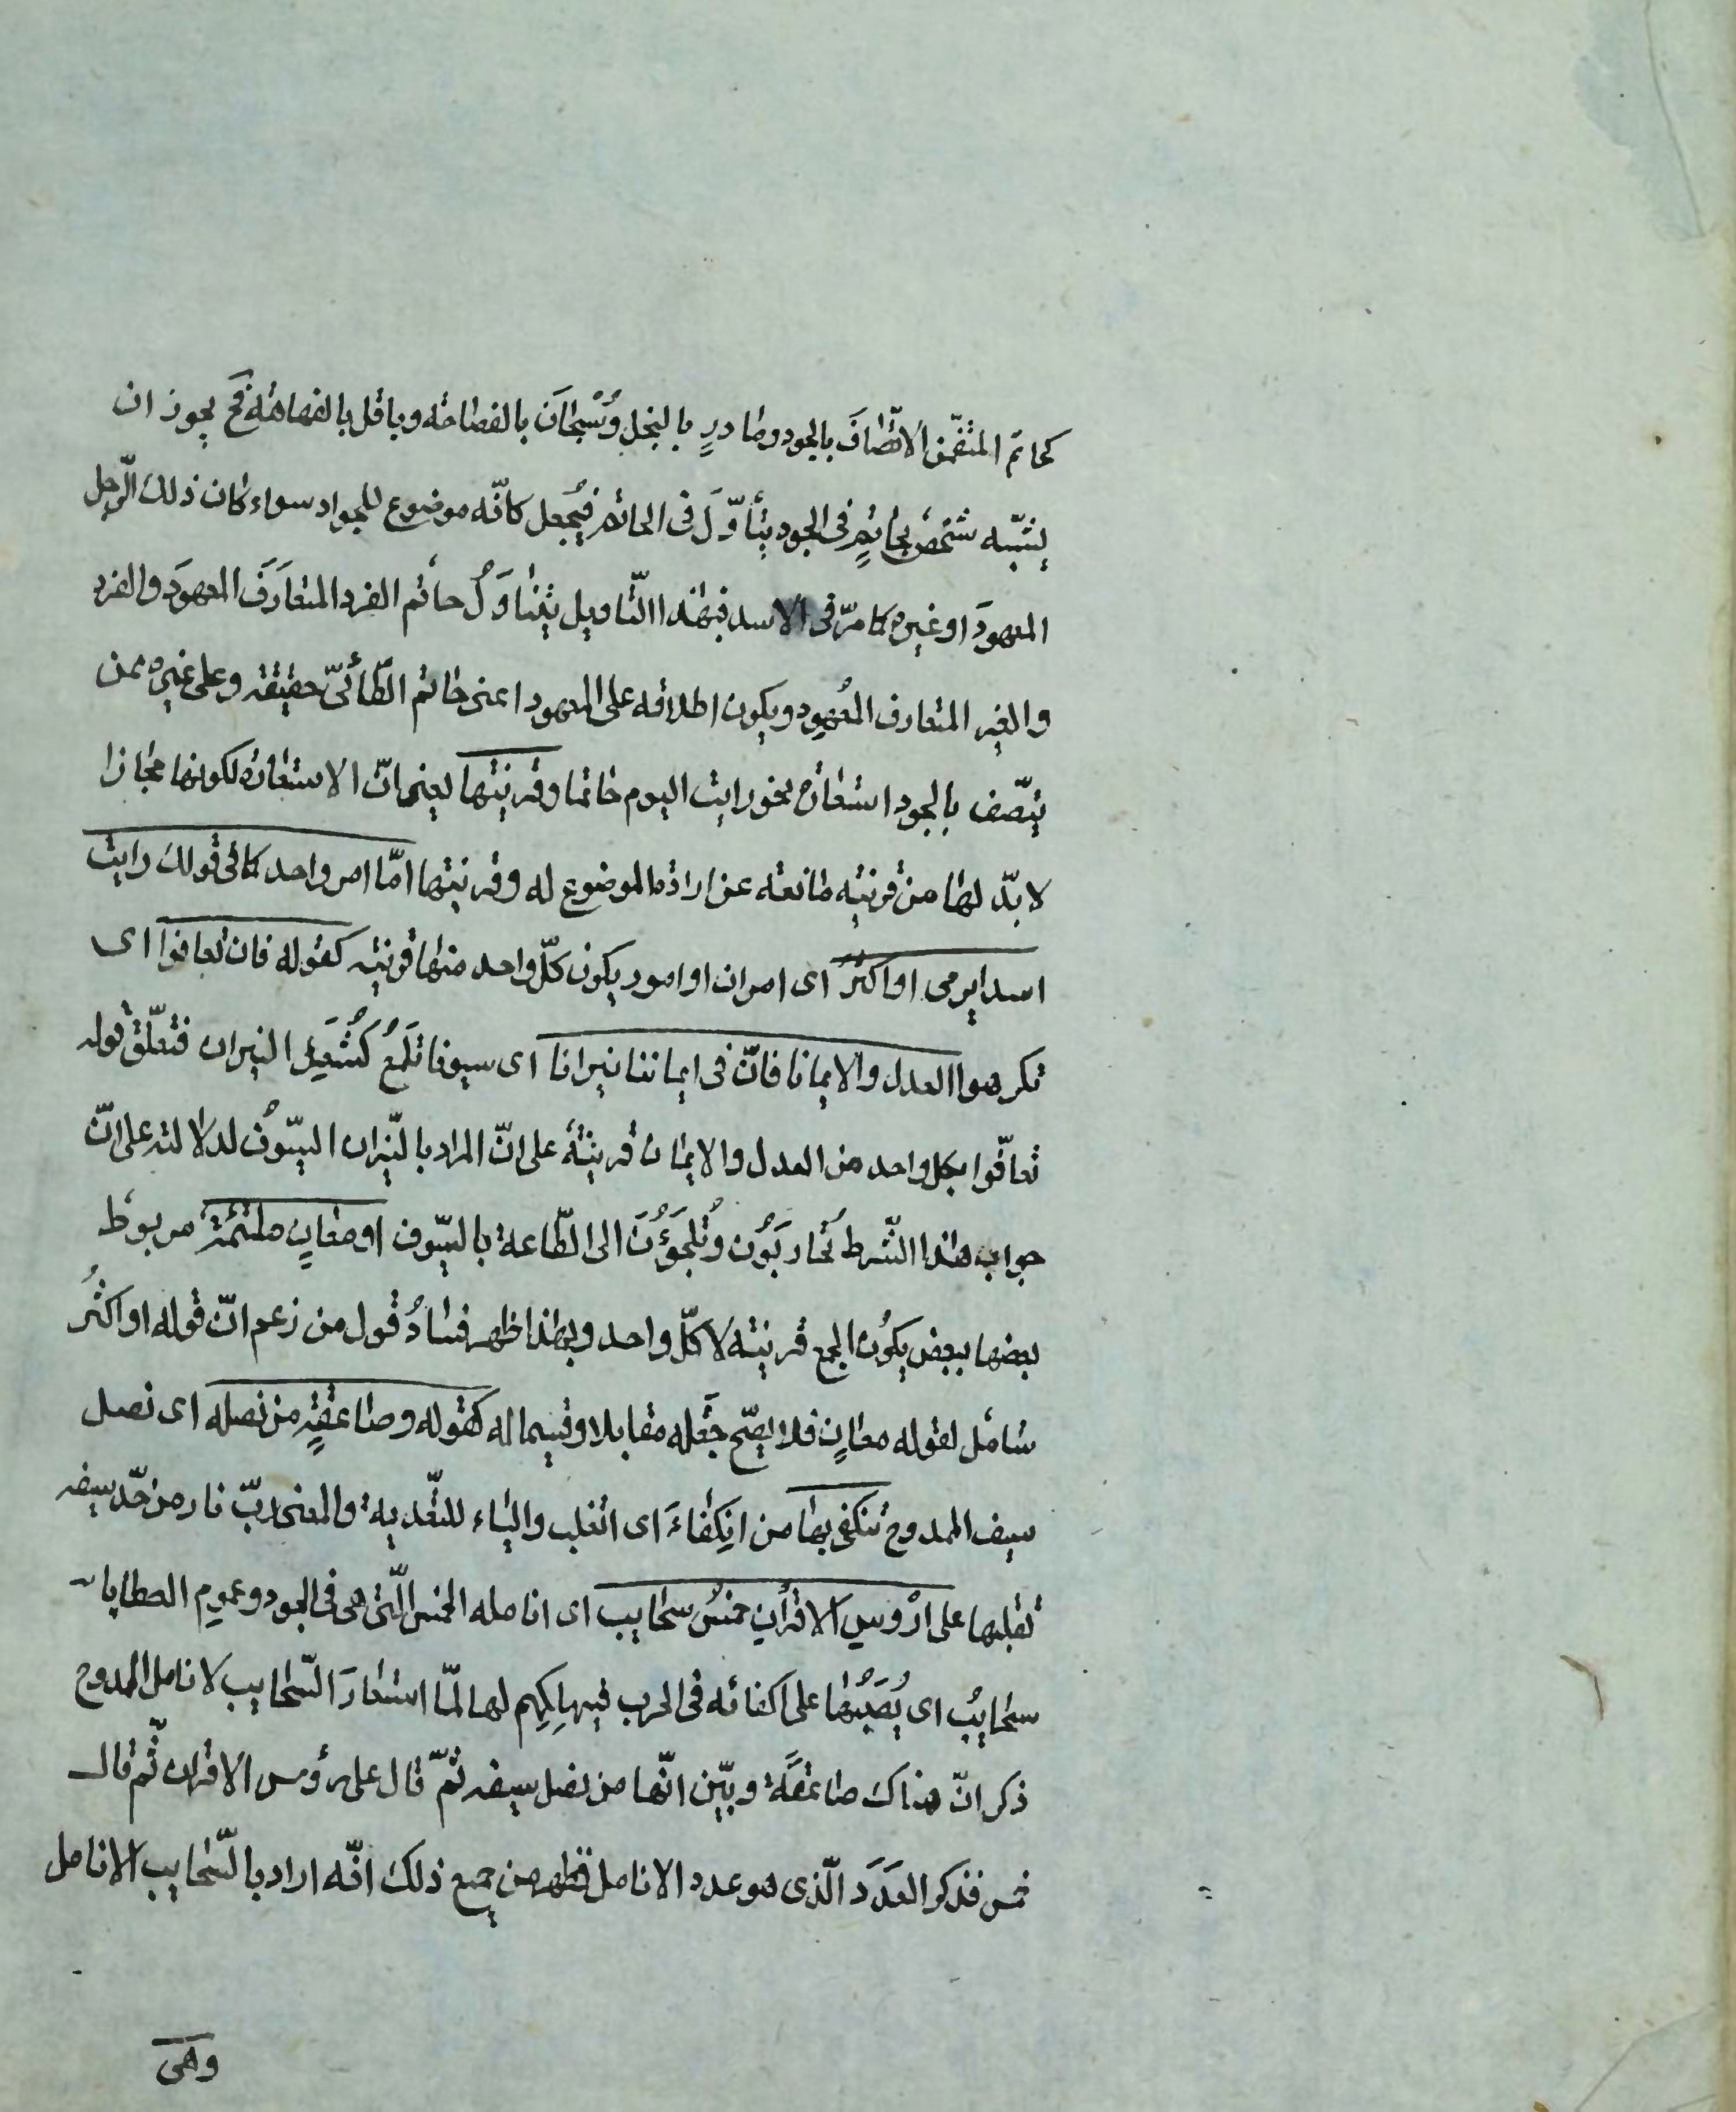 كحاتم المتضمّن الاتّصافَ بالجود ومادرٍ بالبخل وسُحْبَان بالفصاحة وباقل بالفهاهة فح يجوز ان
يشبّه شخصٌ بحاتمٍ فى الجود بتأوّل فى الحاتم فيُجعل كانّه موضوع للجواد سواء كان ذلك الرّجل
المعهودَ او غيره كما مرّ فى الاسد فبهذا التّاويل يتناوَلُ حاتم الفرد المتعارَفَ المعهودَ والفرد
والغير المتعارف المعهود ويكون اطلاقه على المعهود اعنى حاتم الطّائىّ حقيقة وعلى غيره ممن
يتّصف بالجود استعارة نحو رايت اليوم حاتما وقرينتها يعنى انّ الاستعارة لكونها مجازا
لا بدّ لها من قرينة مانعة عن ارادة الموضوع له وقرينتها امّا امر واحد كما فى قولك رايت
اسدا يرمى او اكثرُ اى امران او امور يكون كلّ واحد منها قرينة كقوله فان تعافوا اى
تكرهوا العدل والايمانا فانّ فى ايماننا نيرانا اى سيوفا تلمَعُ كشُعَلِ النيران فتعلّق قوله
تعافوا بكل واحد من العدل والايمان قرينةٌ على انّ المراد بالنّيران السّيوفُ لدلالته على انّ
جواب هذا الشّرط تُحاربَون وتُلجَؤُنَ الى الطّاعة بالسّيوف او معانٍ ملتئمةٌ مربوط
بعضها ببعض يكون الجمع قرينة لا كلّ واحد وبهذا ظهر فسادُ قول من زعم انّ قوله او اكثرُ
شامل لقوله معانٍ فلا يصحّ جعْله مقابلا وقسيما له كقوله وصاعقةٍ من نصله اى نصل
سيف الممدوح تنكفى بها من انكفاءَ اى انقلب والباء للتّعدية والمعنى ربّ نار من حدّ سيفه
تقلبها على ارْوسِ الاقرانِ خمسُ سحايب اى انامله الخمس الّتى هى فى الجود وعموم العطايا
سحايبُ اى يُصَبُّها على اكفائه فى الحرب فيهلِكهم لها لمّا استعارَ السّحايب لانامل الممدوح
ذكر انّ هناك صاعقَةً وبيّن انّها من نصل سيفه ثمّ قال على رؤس الاقران ثّم قال
خمس فذكر العدَدَ الّذى هو عدد الانامل فظهر من جميع ذلك انّه اراد بالسّحايب الانامل
وهى